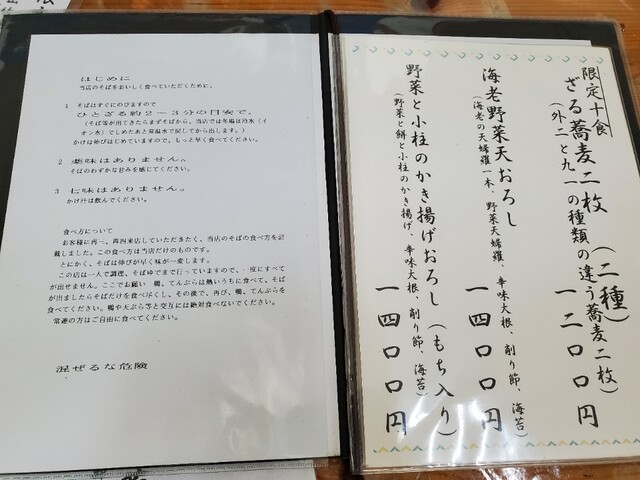 はじめに
当店のそばをおいしく食べていただくために、
1 そばはすぐにのびますので
ひとざる約2〜3分の目安で。
(そば等が出てきたらまずそばから、当店では冬場は冷水(イ
オン水)でしめたあと常温水で戻してから出します。)
かけは伸びはじめていますので、もっと早く食べてください。
2 薬味はありません。
そばのわずかな甘みを感じてください。
3 七味はありません。
かけ汁は飲んでください。
食べ方について
お客様に再一、再四来店していただきたく、当店のそばの食べ方を記
載しました。この食べ方は当店だけのものです。
とにかく、そばは伸びが早く味が一変します。
この店は一人で調理、そばゆでまで行っていますので、一度にすべて
が出せません。ここでお願い 鴨、てんぷらは熱いうちに食べて、そば
が出ましたらそばだけを食べ尽くし、その後で、再び、鴨、てんぷらを
食べてください。鴨や天ぷら等と交互には絶対食べないでください。
常連の方はご自由に食べてください。
混ぜるな危険
限定十食
ざる蕎麦二枚(二種)
(外二と九一の種類の違う蕎麦二枚)
一二〇〇円
海老野菜天おろし
(海老の天婦羅一本、野菜天婦羅、辛味大根、削り節、海苔)
一四〇〇円
野菜と小柱のかき揚げおろし(もち入り)
(野菜と餅と小柱のかき揚げ、辛味大根、削り節、海苔)
一四〇〇円